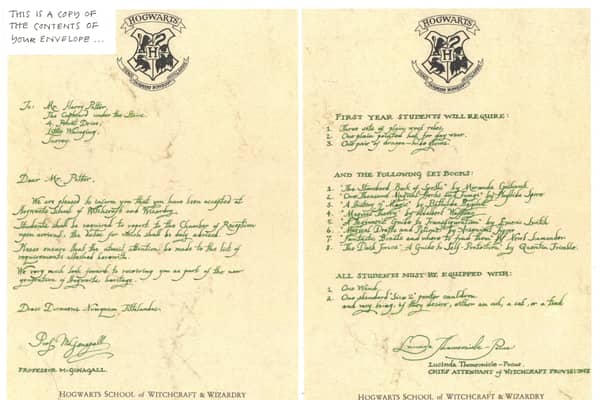 THIS IS A COPY OF
THE CONTENTS OF
YOUR ENVELOPE...
HOGWARTS
To: Mr. Harry Potter,
The Cupboard under the Stairs
4, Privet Drive,
Little Whinging,
Surrey.
Dear Mr. Potter,
We are pleased to inform you that you have been accepted at
Hogwarts School of Witchcraft and Wizardry.
Students shall be required to report to the Chamber of Reception
upon arrival, the dates for which shall be duly advised.
Please ensure that the utmost attention be made to the list of
requirements attached herewith.
We very much look forward to receiving you as part of the new
generation of Hogwarts heritage.
Draco Dormiens Nunquam Titillandus
Prof. McGonagall
PROFESSOR McGONAGALL
HOGWARTS SCHOOL of WITCHCRAFT & WIZARDRY
HOGWARTS
FIRST YEAR STUDENTS WILL REQUIRE:
1. Three sets of plain work robes
2. One plain pointed hat for day wear.
3. One pair of dragon-hide gloves
AND THE FOLLOWING SET BOOKS:
1. "The Standard Book of Spells" by Miranda Goshawk
2. "One Thousand Magical Herbs and Fungi" by Phyllida Spore
3. "A History of Magic" by Bathilda Bagshot
4. "Magical Theory" by Adalbert Waffling
5. "A Beginners Guide to Transfiguration" by Emeric Switch
6. "Magical Drafts and Potions" by Arsenius Jigger
7. "Fantastic Beasts and where to find them" by Newt Scamander
8. "The Dark Forces: A Guide to Self-Protection" by Quentin Trimble.
ALL STUDENTS MUST BE EQUIPPED WITH:
1. One Wand
2. One standard "Size 2" pewter cauldron
and may bring, if they desire, either an owl, a cat, or a toad
Lucinda Thomonicle-Pocus
LUCINDA THOMONICLE-POCUS
CHIEF ATTENDANT of WITCHCRAFT PROVISIONS
HOGWARTS SCHOOL of WITCHCRAFT & WIZARDRY